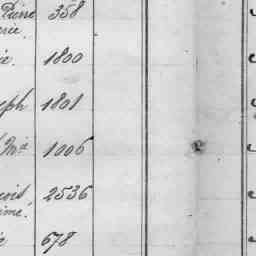 Pierre 358
rie.
ie. 1800
eph 1801
Mie 1006
çois 2536
ime.
678